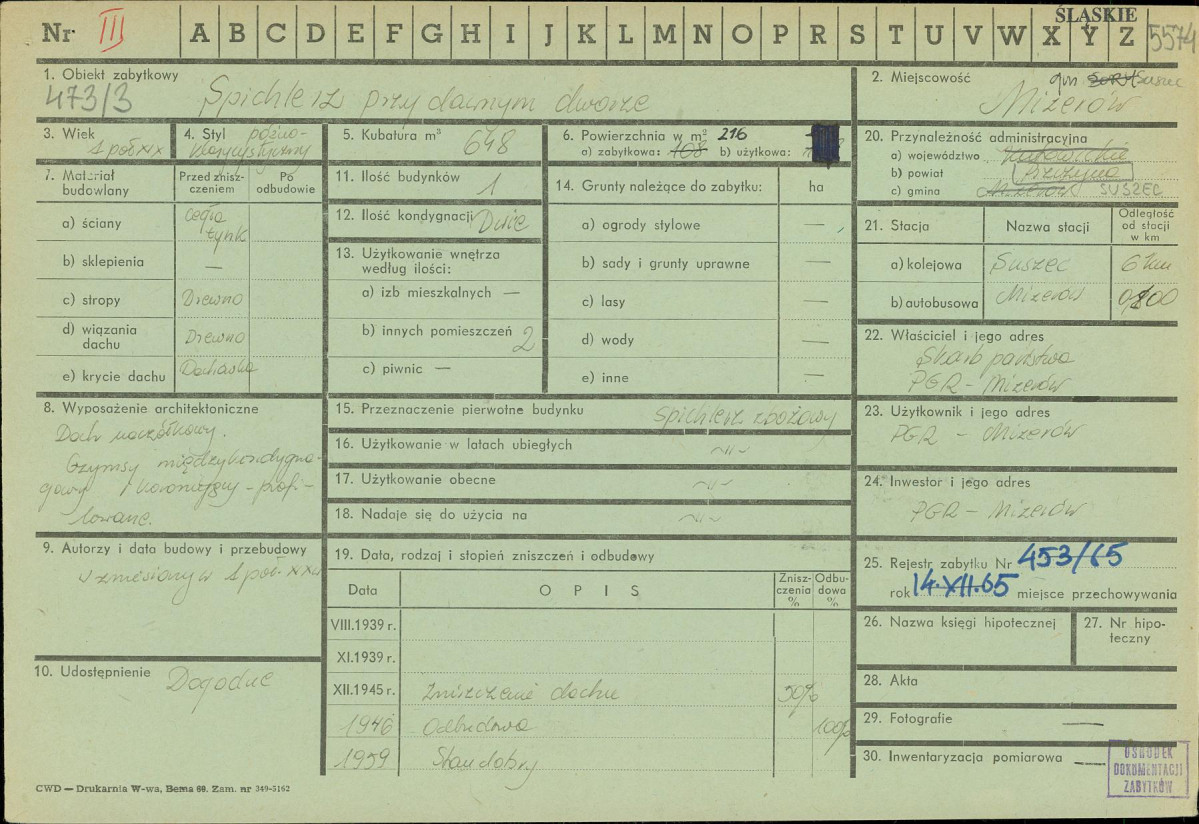 ŚLĄSKIE
Nr III A B C D E F G H I J K L M N O P R S T U V W X Y Z 5574
1. Obiekt zabytkowy
473/3 Spichlerz przy dawnym dworze
2. Miejscowość gm Suszec
Mizerów
3. Wiek
1 poł XIX
4. Styl późno-
klasycystyczny
5. Kubatura m³ 648
6. Powierzchnia w m² 216
a) zabytkowa: 108 b) użytkowa:
20. Przynależność administracyjna
a) województwo Katowickie
b) powiat Pszczyna
c) gmina Mizerów SUSZEC
7. Materiał
budowlany
Przed znisz-
czeniem
Po
odbudowie
a) ściany cegła
tynk
b) sklepienia —
c) stropy Drewno
d) wiązania
dachu Drewno
e) krycie dachu Dachówka
11. Ilość budynków 1
12. Ilość kondygnacji Dwie
13. Użytkowanie wnętrza
według ilości:
a) izb mieszkalnych —
b) innych pomieszczeń 2
c) piwnic —
14. Grunty należące do zabytku: ha
a) ogrody stylowe —
b) sady i grunty uprawne —
c) lasy —
d) wody —
e) inne —
21. Stacja Nazwa stacji Odległość
od stacji
w km
a) kolejowa Suszec 6 km
b) autobusowa Mizerów
22. Właściciel i jego adres
Skarb państwa
PGR - Mizerów
8. Wyposażenie architektoniczne
Dach naczółkowy.
Gzymsy międzykondygna-
gowy i koronujący - profi-
lowane.
15. Przeznaczenie pierwotne budynku Spichlerz zbożowy
16. Użytkowanie w latach ubiegłych ~ıı~
17. Użytkowanie obecne ~ıı~
18. Nadaje się do użycia na ~ıı~
23. Użytkownik i jego adres
PGR - Mizerów
24. Inwestor i jego adres
PGR - Mizerów
9. Autorzy i data budowy i przebudowy
wzniesiony w 1 poł. XIX w
19. Data, rodzaj i stopień zniszczeń i odbudowy
Data OPIS Znisz-
czenia
% Odbu-
dowa
%
VIII.1939 r.
XI.1939 r.
XII.1945 r. Zniszczenie dachu 50%
1946 Odbudowa 100%
1959 Stan dobry
25. Rejestr zabytku Nr 453/65
rok 14.XII.65 miejsce przechowywania
26. Nazwa księgi hipotecznej
27. Nr hipo-
teczny
10. Udostępnienie Dogodne
28. Akta
29. Fotografie —
30. Inwentaryzacja pomiarowa —
OŚRODEK
DOKUMENTACJI
ZABYTKÓW
CWD — Drukarnia W-wa, Bema 60. Zam. nr 349-5162